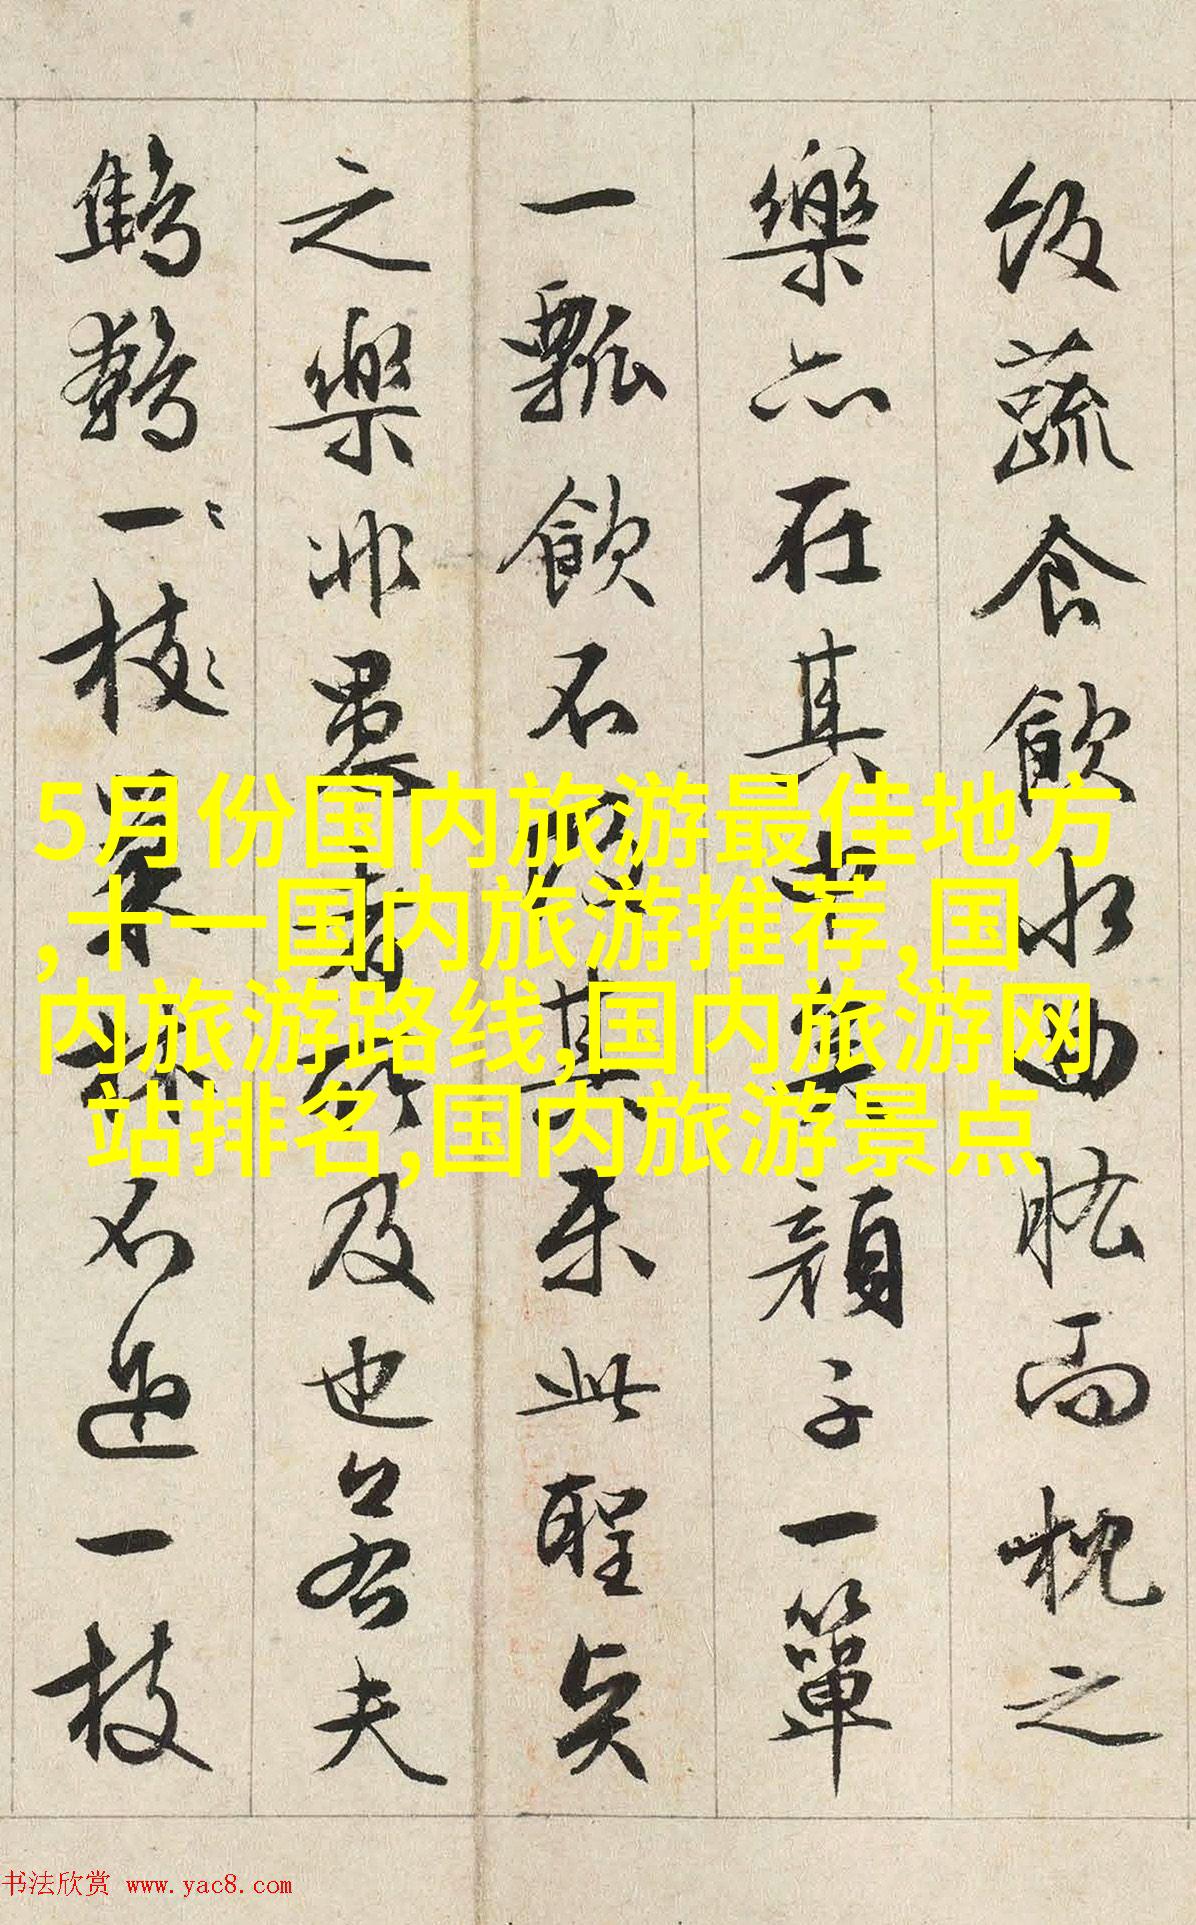 饭蔬食飲水曲肱而枕之
樂亦在其中矣顔子一箪
一瓢飲不改其樂此聖贤
之樂非愚者所及也若夫
鷦鷯一〻枝〻巢林不過一枝
5月份国内旅游最佳地方
,十一国内旅游推荐,国
内旅游路线,国内旅游网
站排名,国内旅游景点
书法欣赏 www.yac8.com